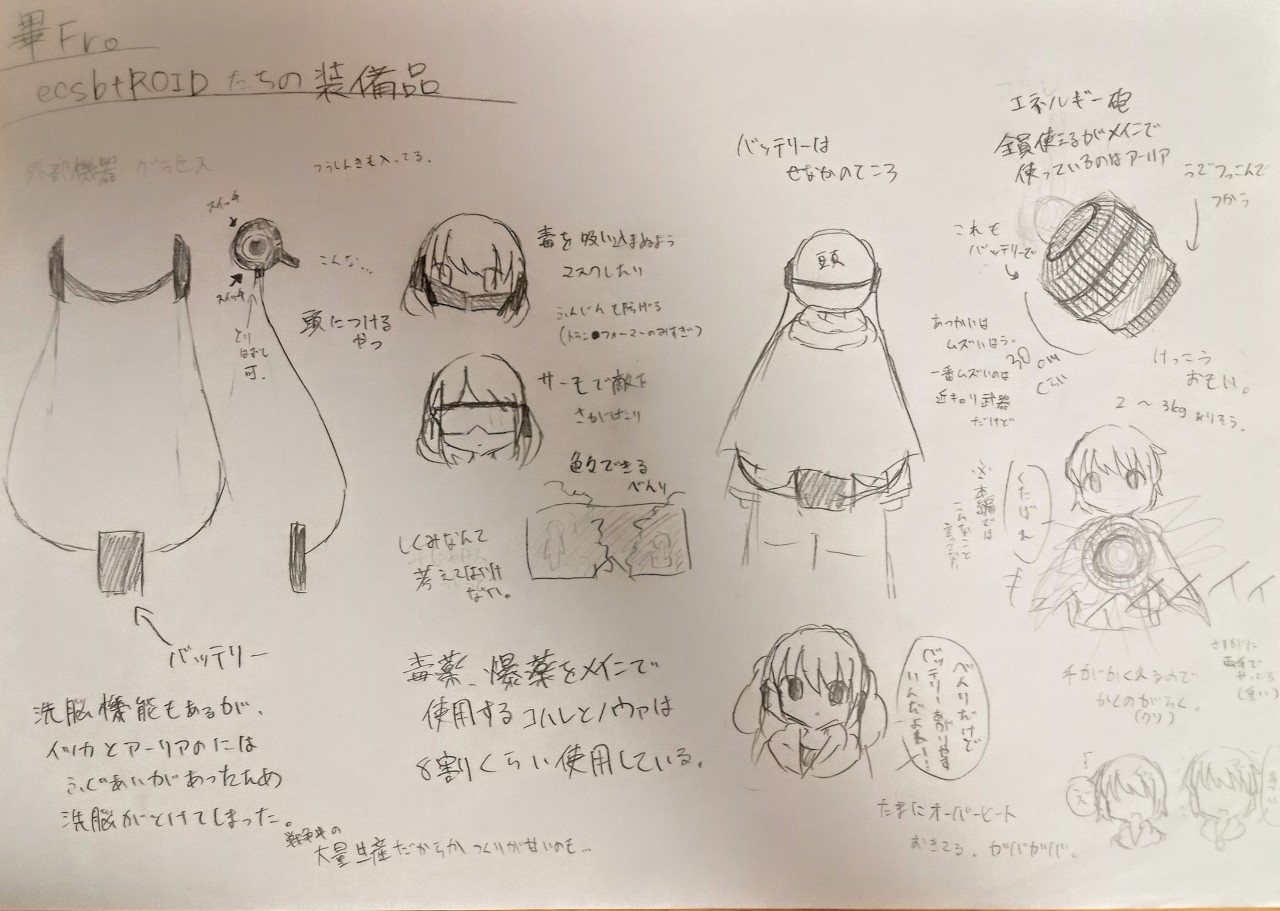 畢Fro
ecsbtROIDたちの装備品
外部機器 グラセス
つうしんきも入ってる.
スイッチ
スイッチ
こんな…
とり
はずし
可.
頭につける
やつ
バッテリー
洗脳機能もあるが、
イツカとアーリアのには
ふぐあいがあったため
洗脳がとけてしまった。
大量生産だからか つくりが甘いのも…
毒を吸い込まぬよう
マスクしたり
ふんじんも防げる
(トラン●フォーマーのみすぎ)
サーモで敵を
さがせたり
色々できる
べんり
しくみなんて
考えてはいけ
ない。
毒薬、爆薬をメインで
使用するコハレとノヴァは
8割くらい使用している.
バッテリーは
せなかのてころ
頭
べんりだけで
バッテリー
いんだよね…
たまにオーバーヒート
おきてる. ガバガバ.
エネルギー砲
全員使えるがメインで
使っているのはアーリア
うでつっこんで
つかう
これも
バッテリーで
あつかいは
ムズいほう.
一番ムズいのは
近キョリ武器
だけど
30cm
くらい
けっこう
おもい。
2〜3kgありそう.
くたばれ
※本編では
こんなこと
言ってない
手がかくえるので
かくのがらく.
(クソ)
さすがに
両手で
やってる
(重い)
え